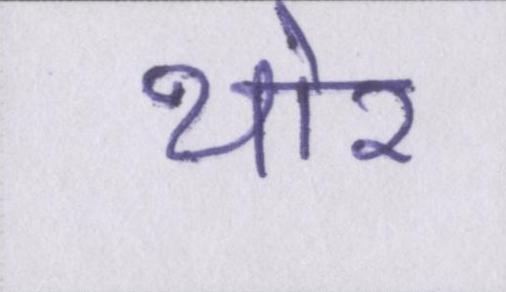 थोर